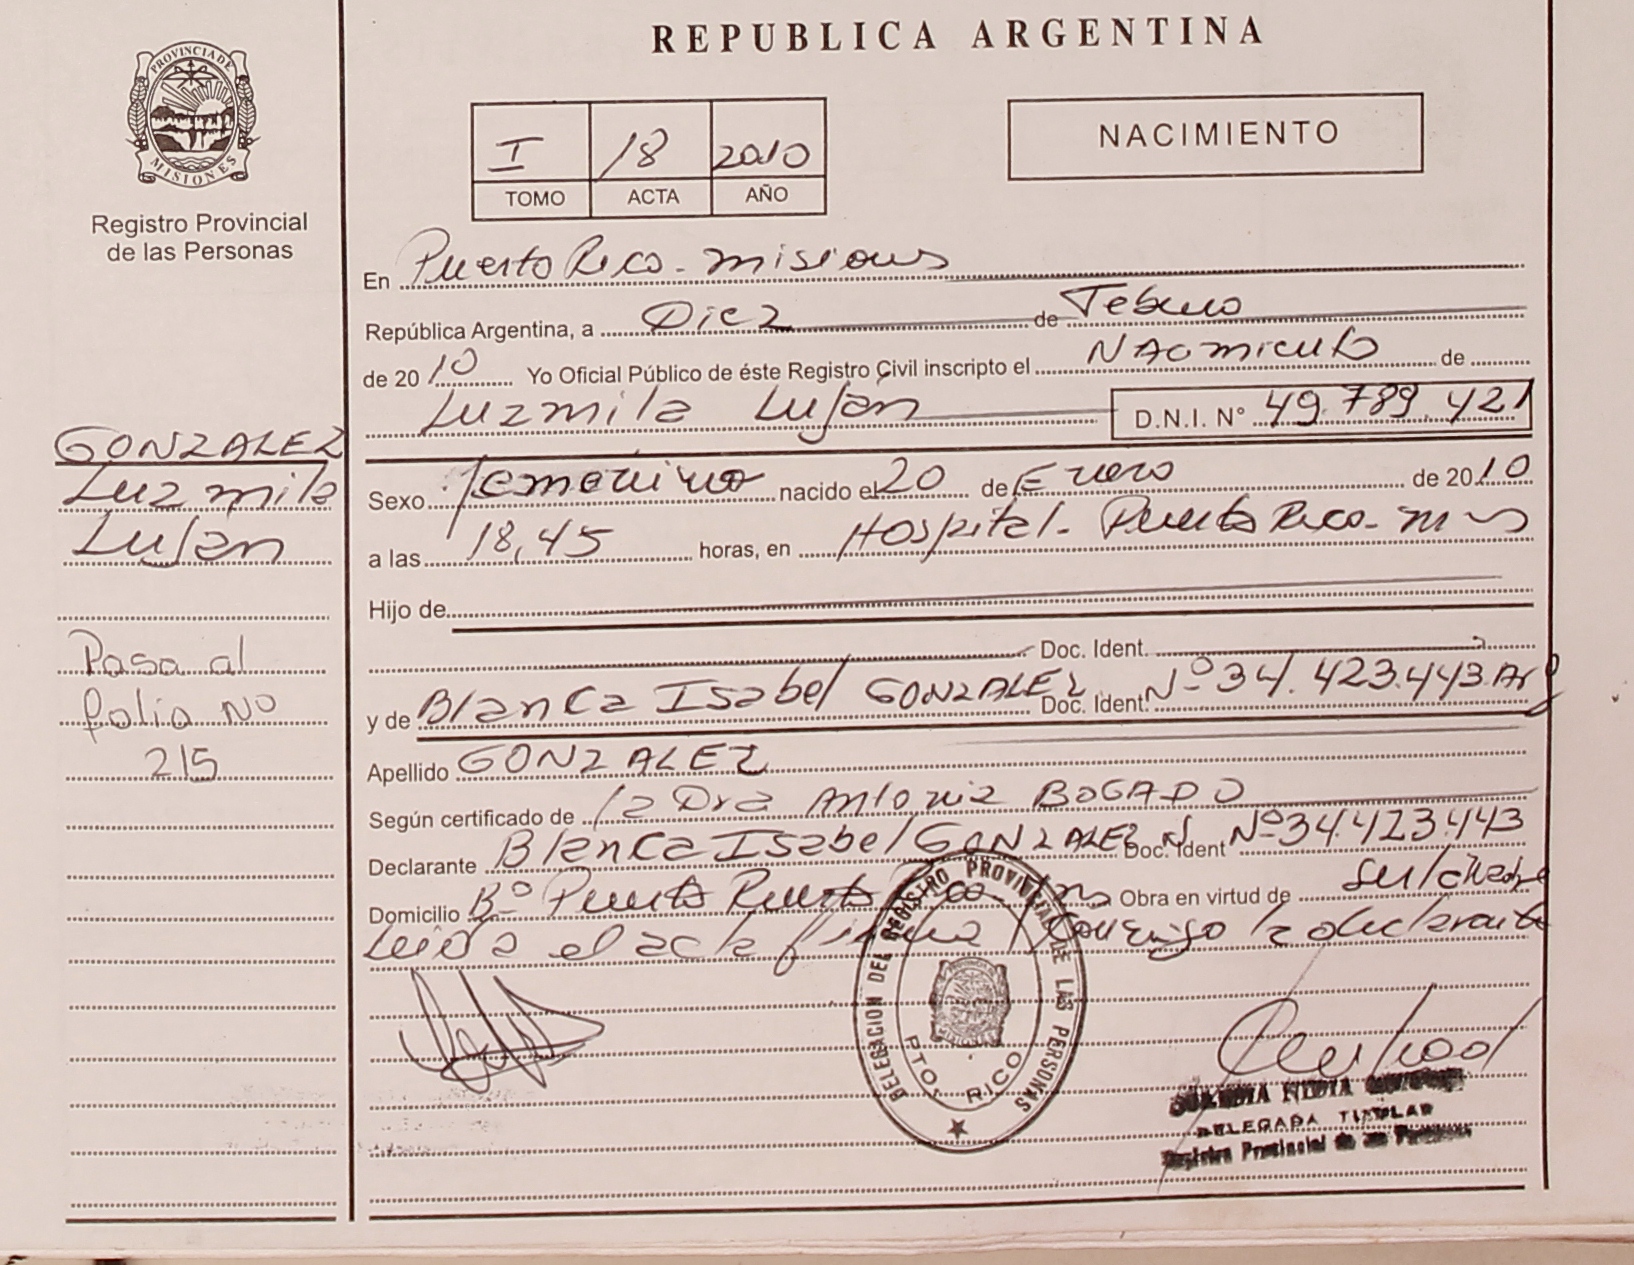 REPUBLICA ARGENTINA
PROVINCIA DE
MISIONES
Registro Provincial
de las Personas
I 18 2010
TOMO ACTA AÑO
NACIMIENTO
En Puerto Rico - misiones
República Argentina, a Diez de Febrero
de 2010 Yo Oficial Público de éste Registro Civil inscripto el Nacimiento de
Luzmila Luján D.N.I. N° 49.789.421
GONZALEZ
Luzmila
Luján
Sexo femenino nacido el 20 de Enero de 2010
a las 18,45 horas, en Hospital - Puerto Rico - Mnes
Hijo de
Doc. Ident.
y de Blanca Isabel GONZALEZ Doc. Ident. Nº 34.423.443 Arg
Pasa al
folio Nº
215
Apellido GONZALEZ
Según certificado de la Dra Antonia BOGADO
Declarante Blanca Isabel GONZALEZ Doc. Ident Nº 34.423.443
Domicilio Bº Puerto Puerto Rico Obra en virtud de ser la madre
Leída el acta firma conmigo la declarante
DELEGACION DEL REGISTRO PROVINCIAL DE LAS PERSONAS
PTO. RICO
NIDIA
DELEGADA TITULAR
Registro Provincial de las Personas